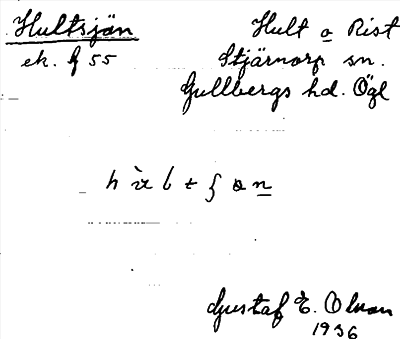 Hultsjön
Hult o Rist
ek. f 55
Stjärnorp sn.
Gullbergs hd. Ögl
Gustaf E. Olson
1936